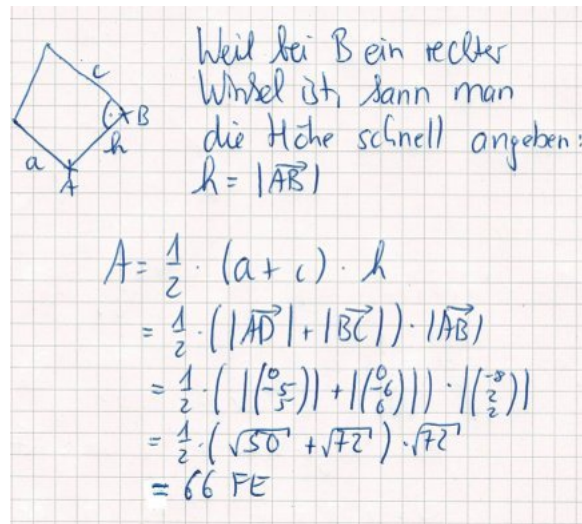 Weil bei B ein rechter
Winkel ist, kann man
die Höhe schnell angeben:
h = |AB→|
c
B
h
a
A
A = 1/2 · (a + c) · h
= 1/2 · (|AD→| + |BC→|) · |AB→|
= 1/2 · (|(0 -5 5)| + |(0 -6 6)|) · |(-8 2 2)|
= 1/2 · (√50 + √72) · √72
= 66 FE